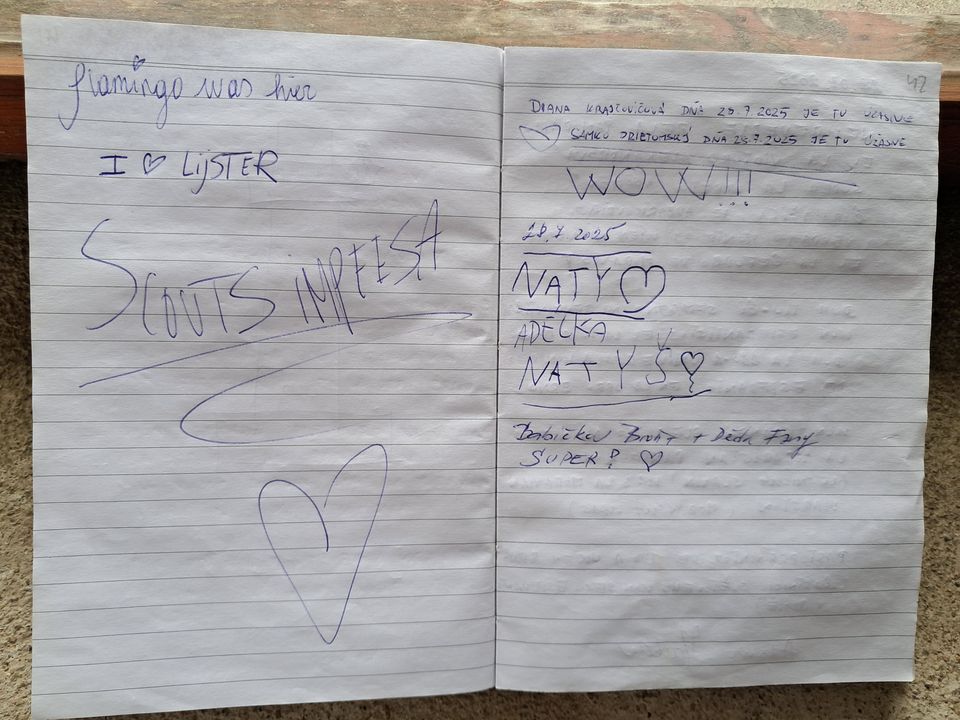 flamingo was hier
I ♡ LijSTER
SCOUTS iMPEESA
42
DIANA KRAJČOVIČOVÁ DŇA 28.7.2025 JE TU ÚŽASNE
♡ SAMKO DŇA 28.7.2025 JE TU ÚŽASNE
WOW!!!
28.7.2025
NATY♡
ADÉLKA
NATYŠ
Babička + Děda
SUPER! ♡